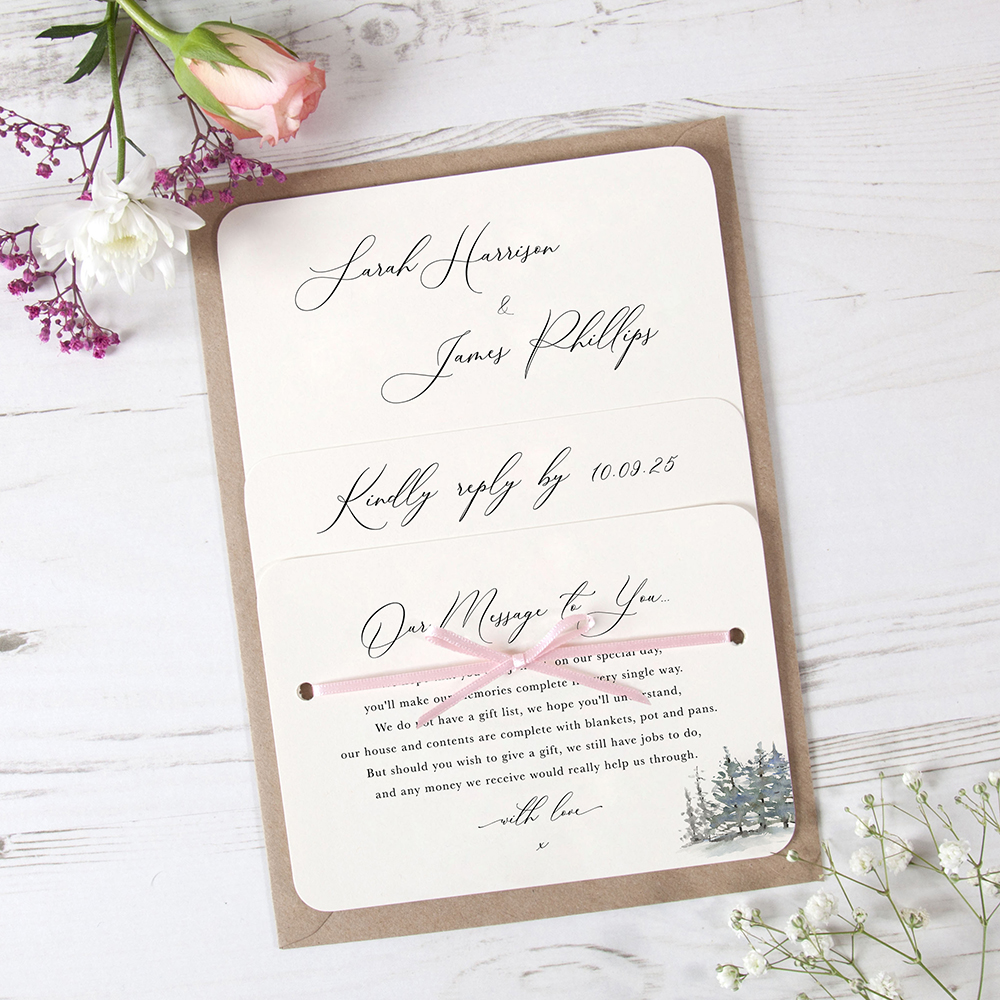 Sarah Harrison
&
James Phillips
Kindly reply by 10.09.25
Our Message to You...
on our special day,
you'll make our memories complete in every single way.
We do not have a gift list, we hope you'll understand,
our house and contents are complete with blankets, pot and pans.
But should you wish to give a gift, we still have jobs to do,
and any money we receive would really help us through.
with love
x